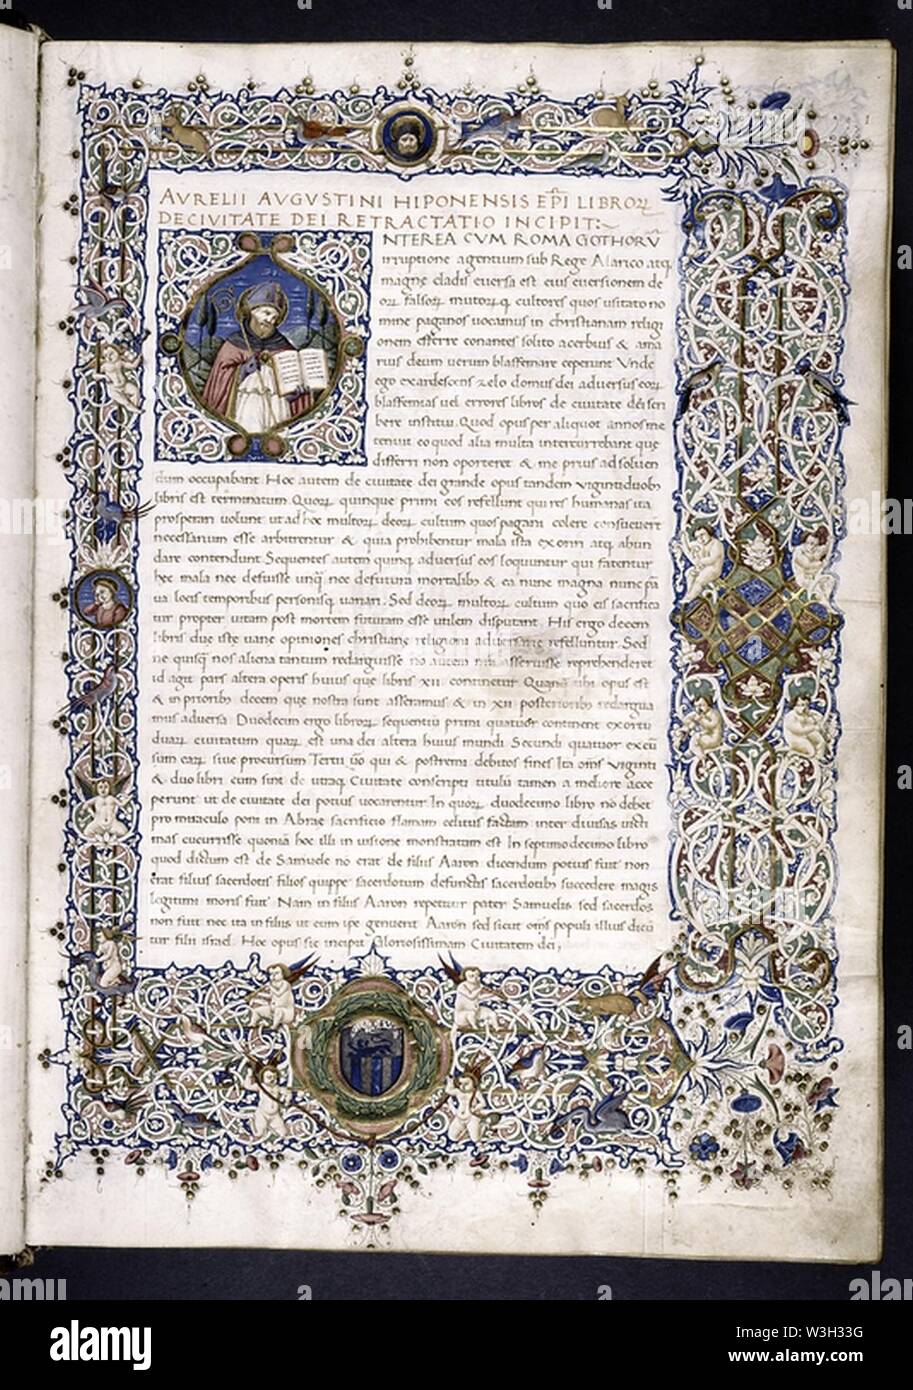 AVRELII AVGVSTINI HIPONENSIS EP̄I LIBROꝜ
DE CIVITATE DEI RETRACTATIO INCIPIT:~
INTEREA CVM ROMA GOTHORV̄
irruptione agentium sub Rege Alarico atq;
magnę cladis euersa est eius euersionem de
orꝝ falsorꝝ multorꝝq; cultores quos usitato no
mine paganos uocamus in christianam religi
onem efferre conantes solito acerbius & ama
rius deum uerum blasfemare ceperunt Vnde
ego exardescens zelo domus dei aduersus eorꝝ
blasfemias uel errores libros de ciuitate dei scri
bere institui. Quod opus per aliquot annos me
tenuit eo quod alia multa intercurrebant quę
differri non oporteret & me prius ad soluen
dum occupabant Hoc autem de ciuitate dei grande opus tandem uigintiduob;
libris est terminatum Quorꝝ quinque primi eos refellunt qui res humanas ita
prosperari uolunt ut ad hoc multorꝝ deorꝝ cultum quos pagani colere consueuert
necessarium esse arbitrentur & quia prohibentur mala ista exoriri atq; abun
dare contendunt Sequentes autem quinq; aduersus eos loquuntur qui fatentur
hęc mala nec defuisse unq̄ nec defutura mortalib; & ea nunc magna nunc par
ua locis temporibus personisq; uariari. Sed deorꝝ multorꝝ cultum quo eis sacrifica
tur propter uitam post mortem futuram esse utilem disputant. His ergo decem
libris duę istę uanę opiniones christianę religioni aduersarię refelluntur Sed
ne quisq̄ nos aliena tantum redarguisse nō autem nr̄a asseruisse reprehenderet
id agit pars altera operis huius quę libris XII continetur Quanq̄ ubi opus est
& in priorib; decem quę nostra sunt asseramus & in XII posteriorib; redargua
mus aduersa Duodecim ergo librorꝝ sequentiū primi quatuor continent exortū
duarꝝ ciuitatum quarꝝ est una dei altera huius mundi Secundi quatuor excur
sum earꝝ siue procursum Tertii ū̇o qui & postremi debitos fines Ita om̄s uiginti
& duo libri cum sint de utraq; Ciuitate conscripti titulū tamen a meliore acce
perunt ut de ciuitate dei potius uocarentur In quorꝝ duodecimo libro nō debet
pro miraculo poni in Abrae sacrificio flamam celitus factam inter diuisas uicti
mas cucurrisse quoniā hoc illi in uisione monstratum est In septimodecimo libro
quod dictum est de Samuele nō erat de filiis Aaron dicendum potius fuit non
erat filius sacerdotis filios quippe sacerdotum defunctis sacerdotib; succedere magis
legitimi moris fuit Nam in filiis Aaron repetitur pater Samuelis sed sacerdos
non fuit nec ita in filiis ut eum ip̄e genuerit Aaron sed sicut om̄s populi illius dicū
tur filii israel. Hoc opus sic incipit Gloriosissimam Ciuitatem dei;
alamy
Image ID: W3H33G
www.alamy.com